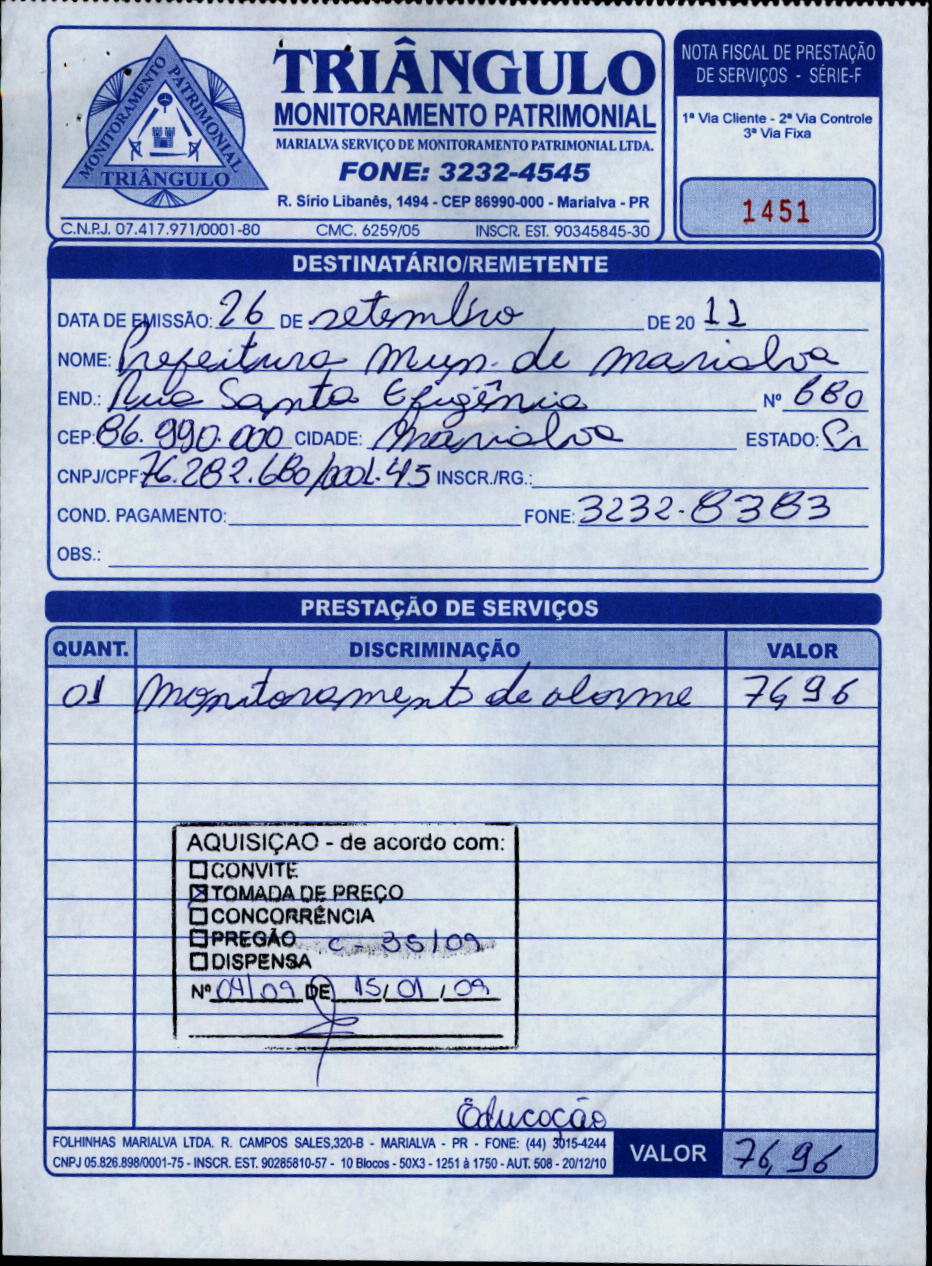 MONITORAMENTO PATRIMONIAL
TRIÂNGULO
TRIÂNGULO
MONITORAMENTO PATRIMONIAL
MARIALVA SERVIÇO DE MONITORAMENTO PATRIMONIAL LTDA.
FONE: 3232-4545
R. Sírio Libanês, 1494 - CEP 86990-000 - Marialva - PR
C.N.P.J. 07.417.971/0001-80 CMC. 6259/05 INSCR. EST. 90345845-30
NOTA FISCAL DE PRESTAÇÃO
DE SERVIÇOS - SÉRIE-F
1ª Via Cliente - 2ª Via Controle
3ª Via Fixa
1451
DESTINATÁRIO/REMETENTE
DATA DE EMISSÃO: 26 DE setembro DE 20 11
NOME: Prefeitura Mun. de Marialva
END.: Rua Santa Efigênia Nº 680
CEP: 86.990.000 CIDADE: Marialva ESTADO: Pr
CNPJ/CPF 76.282.680/0001.45 INSCR./RG.:
COND. PAGAMENTO: FONE: 3232-8383
OBS.:
PRESTAÇÃO DE SERVIÇOS
QUANT. DISCRIMINAÇÃO VALOR
01 Monitoramento de alarme 76,96
AQUISIÇAO - de acordo com:
CONVITE
TOMADA DE PREÇO
CONCORRÊNCIA
PREGÃO C- 35/09
DISPENSA
Nº 04/09 DE 15/01/09
Educação
FOLHINHAS MARIALVA LTDA. R. CAMPOS SALES,320-B - MARIALVA - PR - FONE: (44) 3015-4244
CNPJ 05.826.898/0001-75 - INSCR. EST. 90285810-57 - 10 Blocos - 50X3 - 1251 à 1750 - AUT. 508 - 20/12/10
VALOR 76,96